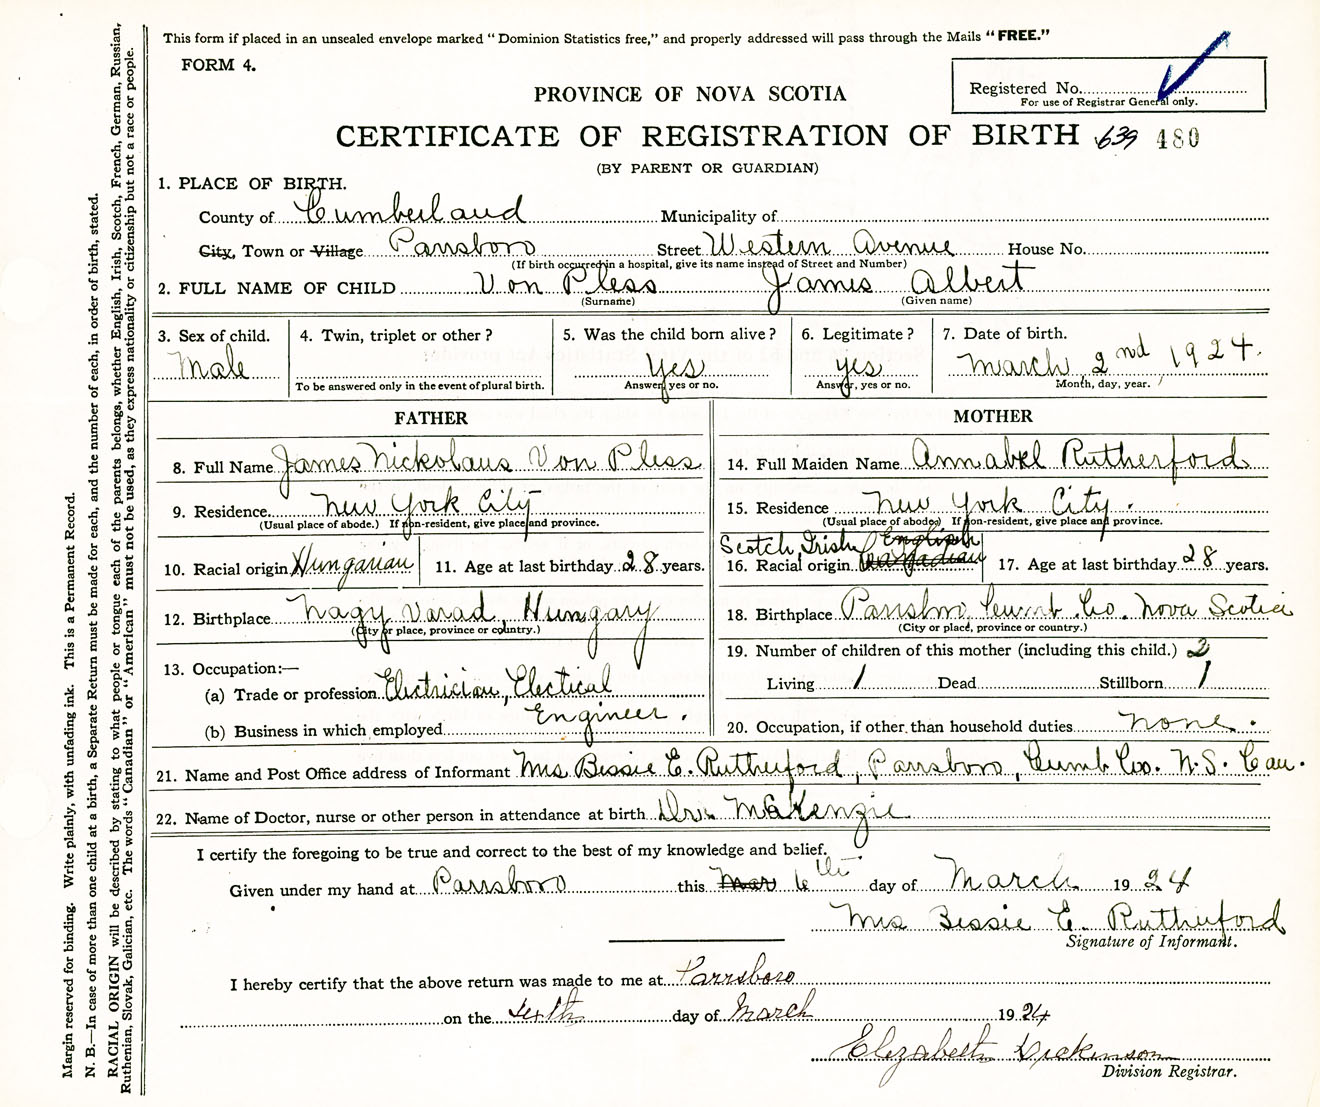 This form if placed in an unsealed envelope marked "Dominion Statistics free," and properly addressed will pass through the Mails "FREE."
FORM 4.
Registered No.
For use of Registrar General only.
PROVINCE OF NOVA SCOTIA
CERTIFICATE OF REGISTRATION OF BIRTH 639 480
(BY PARENT OR GUARDIAN)
1. PLACE OF BIRTH.
County of Cumberland Municipality of
City, Town or Village Parrsboro Street Western Avenue House No.
(If birth occurred in a hospital, give its name instead of Street and Number)
2. FULL NAME OF CHILD Von Pless James Albert
(Surname) (Given name)
3. Sex of child. 4. Twin, triplet or other? 5. Was the child born alive? 6. Legitimate? 7. Date of birth.
Male Yes yes March 2nd 1924.
To be answered only in the event of plural birth. Answer, yes or no. Answer, yes or no. Month, day, year.
FATHER
8. Full Name James Nickolaus Von Pless
9. Residence New York City
(Usual place of abode.) If non-resident, give place and province.
10. Racial origin Hungarian 11. Age at last birthday 28 years.
12. Birthplace Nagy Varad, Hungary
(City or place, province or country.)
13. Occupation:—
(a) Trade or profession Electrician, Electical
Engineer.
(b) Business in which employed
MOTHER
14. Full Maiden Name Annabel Rutherford
15. Residence New York City.
(Usual place of abode) If non-resident, give place and province.
Scotch, Irish, English
16. Racial origin 17. Age at last birthday 28 years.
18. Birthplace Parrsboro, Cumb. Co. Nova Scotia
(City or place, province or country.)
19. Number of children of this mother (including this child.) 2
Living 1 Dead Stillborn 1
20. Occupation, if other than household duties none.
21. Name and Post Office address of Informant Mrs. Bessie E. Rutherford, Parrsboro, Cumb. Co. N.S. Can.
22. Name of Doctor, nurse or other person in attendance at birth Dr. McKenzie
I certify the foregoing to be true and correct to the best of my knowledge and belief.
Given under my hand at Parrsboro this Mar 6th day of March 1924
Mrs Bessie E. Rutherford
Signature of Informant.
I hereby certify that the above return was made to me at Parrsboro
on the sixth day of March 1924
Elizabeth Dickinson
Division Registrar.
Margin reserved for binding. Write plainly, with unfading ink. This is a Permanent Record.
N. B.—In case of more than one child at a birth, a Separate Return must be made for each, and the number of each, in order of birth, stated.
RACIAL ORIGIN will be described by stating to what people or tongue each of the parents belongs, whether English, Irish, Scotch, French, German, Russian,
Ruthenian, Slovak, Galician, etc. The words "Canadian" or "American" must not be used, as they express nationality or citizenship but not a race or people.